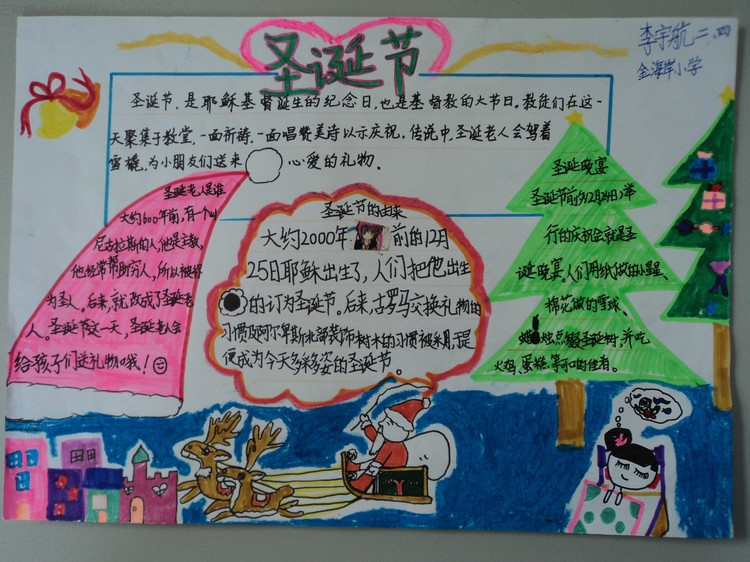 圣诞节
李宇航 二.四
金海岸小学
圣诞节,是耶稣基督诞生的纪念日,也是基督教的大节日。教徒们在这一
天聚集于教堂,一面祈祷,一面唱赞美诗以示庆祝。传说中,圣诞老人会驾着
雪橇,为小朋友们送来 心爱的礼物。
圣诞老人是谁
大约600年前,有一个叫
尼古拉斯的人,他是主教,
他经常帮助穷人,所以被称
为圣人。后来,就改成了圣诞老
人。圣诞节这一天,圣诞老人会
给孩子们送礼物哦!
圣诞节的由来
大约2000年 前的12月
25日耶稣出生了,人们把他出生
的订为圣诞节。后来,古罗马交换礼物的
习惯及阿尔卑斯北部装饰树木的习惯被利用,是
便成为今天多采多姿的圣诞节。
圣诞晚宴
圣诞节前夕(12月24日)举
行的庆祝会就是圣
诞晚宴。人们用纸做的小星星、
棉花做的雪球、
蜡烛点缀圣诞树,并吃
火鸡、蛋糕等可口的佳肴。